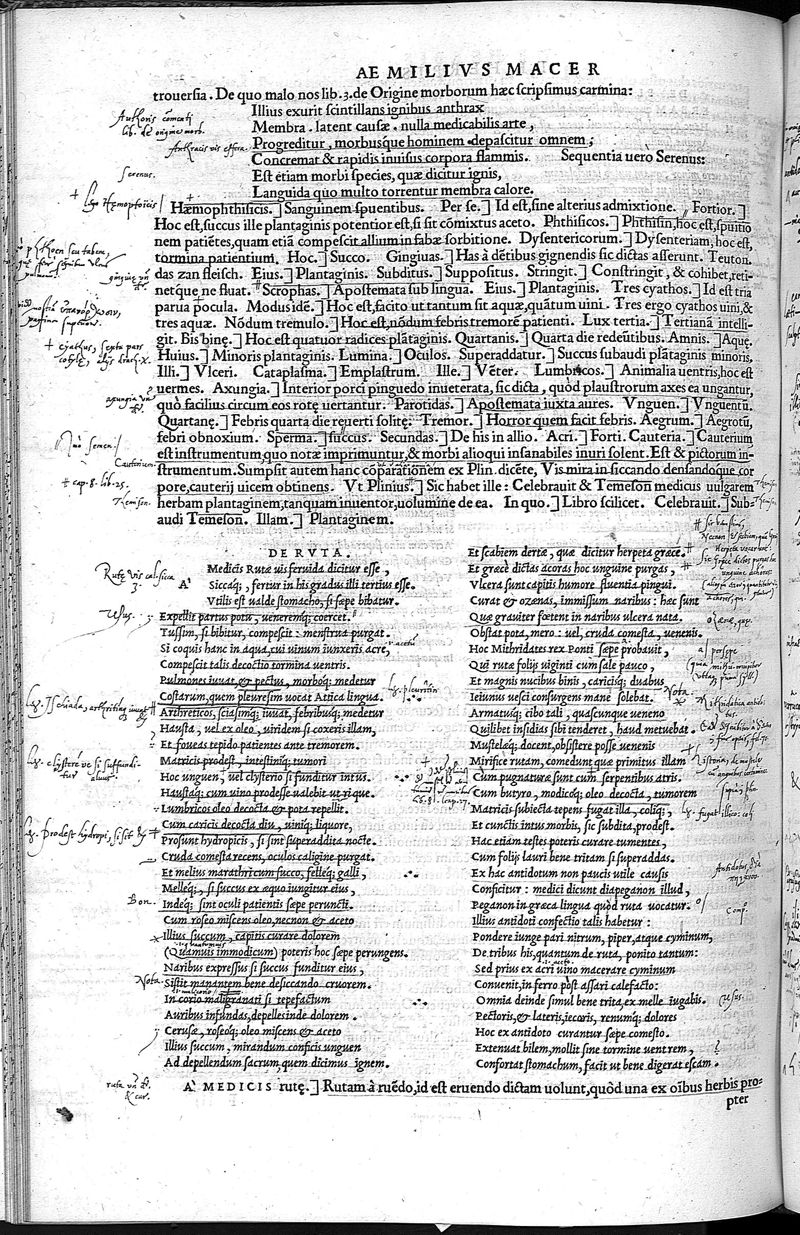 AEMILIVS MACER
trouersia. De quo malo nos lib. 3. de Origine morborum hæc scripsimus carmina:
Illius exurit scintillans ignibus anthrax
Membra. latent causæ. nulla medicabilis arte,
Progreditur, morbusq́ue hominem depascitur omnem;
Concremat & rapidis inuisus corpora flammis. Sequentia uerò Serenus:
Est etiam morbi species, quæ dicitur ignis,
Languida quo multo torrentur membra calore.
Hæmophthisicis.] Sanguinem spuentibus. Per se.] Id est, sine alterius admixtione. Fortior.]
Hoc est, succus ille plantaginis potentior est, si sit cõmixtus aceto. Phthisicos.] Phthisin, hoc est, spuitio
nem patiẽtes, quam etiã compescit allium in fabæ sorbitione. Dysentericorum.] Dysenteriam, hoc est,
tormina patientium. Hoc.] Succo. Gingiuas.] Has à dẽtibus gignendis sic dictas asserunt. Teuton.
das zan fleisch. Eius.] Plantaginis. Subditus.] Suppositus. Stringit.] Constringit, & cohibet, reti-
netq́ue ne fluat. Scrophas.] Apostemata sub lingua. Eius.] Plantaginis. Tres cyathos.] Id est tria
parua pocula. Modus idẽ.] Hoc est, facito ut tantum sit aquæ, quãtum uini. Tres ergo cyathos uini, &
tres aquæ. Nõdum tremulo.] Hoc est, nõdum febris tremorẽ patienti. Lux tertia.] Tertianã intelli-
git. Bis binę.] Hoc est quatuor radices plãtaginis. Quartanis.] Quarta die redeũtibus. Amnis.] Aquę.
Huius.] Minoris plantaginis. Lumina.] Oculos. Superaddatur.] Succus subaudi plãtaginis minoris.
Illi.] Vlceri. Cataplasma.] Emplastrum. Ille.] Vẽter. Lumbricos.] Animalia uentris, hoc est
uermes. Axungia.] Interior porci pinguedo inueterata, sic dicta, quòd plaustrorum axes ea ungantur,
quò facilius circum eos rotę uertantur. Parotidas.] Apostemata iuxta aures. Vnguen.] Vnguentũ.
Quartanę.] Febris quarta die reuerti solitę. Tremor.] Horror quem facit febris. Aegrum.] Aegrotũ,
febri obnoxium. Sperma.] succus. Secundas.] De his in allio. Acri.] Forti. Cauteria.] Cauterium
est instrumentum, quo notæ imprimuntur, & morbi alioqui insanabiles inuri solent. Est & pictorum in-
strumentum. Sumpsit autem hanc cõparationem ex Plin. dicẽte, Vis mira in siccando densandoq́ue cor
pore, cauterij uicem obtinens. Vt Plinius.] Sic habet ille: Celebrauit & Temeson medicus uulgarem
herbam plantaginem, tanquam inuentor, uolumine de ea. In quo.] Libro scilicet. Celebrauit.] Sub-
audi Temeson. Illam.] Plantaginem.
DE RVTA.
A' Medicis Rutæ uis feruida dicitur esse,
Siccaq́;, fertur in his gradus illi tertius esse.
Vtilis est ualde stomacho, si sæpe bibatur.
Expellit partus potu, ueneremq́; coercet.
Tussim, si bibitur, compescit: menstrua purgat.
Si coquis hanc in aqua, cui uinum iunxeris acre,
Compescit talis decoctio tormina ventris.
Pulmones iuuat, & pectus, morboq́; medetur
Costarum, quem pleuresim uocat Attica lingua.
Arthreticos, sciasimq́; iuuat, febribusq́; medetur
Hausta, vel ex oleo, viridem si coxeris illam,
Et foueas tepido patientes ante tremorem.
Matricis prodest, intestiniq́; tumori
Hoc unguen, vel clysterio si funditur intus.
Haustaq́; cum uino prodesse valebit utrique.
Lumbricos oleo decocta & pota repellit.
Cum caricis decocta diu, uiniq́; liquore,
Prosunt hydropicis, si sint superaddita nocte.
Cruda comesta recens, oculos caligine purgat.
Et melius marathricum succo, felleq́; galli,
Melleq́;, si succus ex æquo iungitur eius,
Indeq́; sint oculi patientis sæpe peruncti.
Cum roseo miscens oleo, necnon & aceto
Illius succum, capitis curare dolorem
(Quamuis immodicum) poteris hoc sæpe perungens.
Naribus expressus si succus funditur eius,
Sistit manantem bene desiccando cruorem.
In corio maligranati si tepefactum
Auribus infundas, depelles inde dolorem.
Cerusæ, roseoq́; oleo miscens & aceto
Illius succum, mirandum conficis unguen
Ad depellendum sacrum, quem dicimus ignem.
Et scabiem dertæ, quæ dicitur herpeta græce.
Et græce dictas acoras hoc unguine purgas,
Vlcera sunt capitis humore fluentia pingui.
Curat & ozænas, immissum naribus: hæc sunt
Quæ grauiter fœtent in naribus ulcera nata.
Obstat pota, mero: uel, cruda comesta, uenenis.
Hoc Mithridates rex Ponti sæpe probauit,
Qui ruta folijs uiginti cum sale pauco,
Et magnis nucibus binis, caricisq́; duabus
Ieiunus uesci consurgens mane solebat.
Armatusq́; cibo tali, quascunque ueneno
Quilibet insidias sibi tenderet, haud metuebat.
Mustelaq́; docent, obsistere posse uenenis
Mirifice rutam, comedunt quæ primitus illam
Cum pugnaturæ sunt cum serpentibus atris.
Cum butyro, modicoq́; oleo decocta, tumorem
Matricis subiecta tepens fugat illa, coliq́;,
Et cunctis intus morbis, sic subdita, prodest.
Hac etiam testes poteris curare tumentes,
Cum folijs lauri bene tritam si superaddas.
Ex hac antidotum non paucis utile causis
Conficitur: medici dicunt diapeganon illud,
Peganon in græca lingua quòd ruta uocatur.
Illius antidoti confectio talis habetur:
Pondere iunge pari nitrum, piper, atque cyminum,
De tribus his, quantum de ruta, ponito tantum:
Sed prius ex acri uino macerare cyminum
Conuenit, in ferro pòst assari calefacto:
Omnia deinde simul bene trita, ex melle iugabis.
Pectoris, & lateris, iecoris, renumq́; dolores
Hoc ex antidoto curantur sæpe comesto.
Extenuat bilem, mollit sine tormine uentrem,
Confortat stomachum, facit ut bene digerat escam.
A' MEDICIS rutę.] Rutam à ruẽdo, id est eruendo dictam uolunt, quòd una ex oĩbus herbis pro-
pter
Serenus.
Usus.
Nota.
Bon.
Nota
Usus.